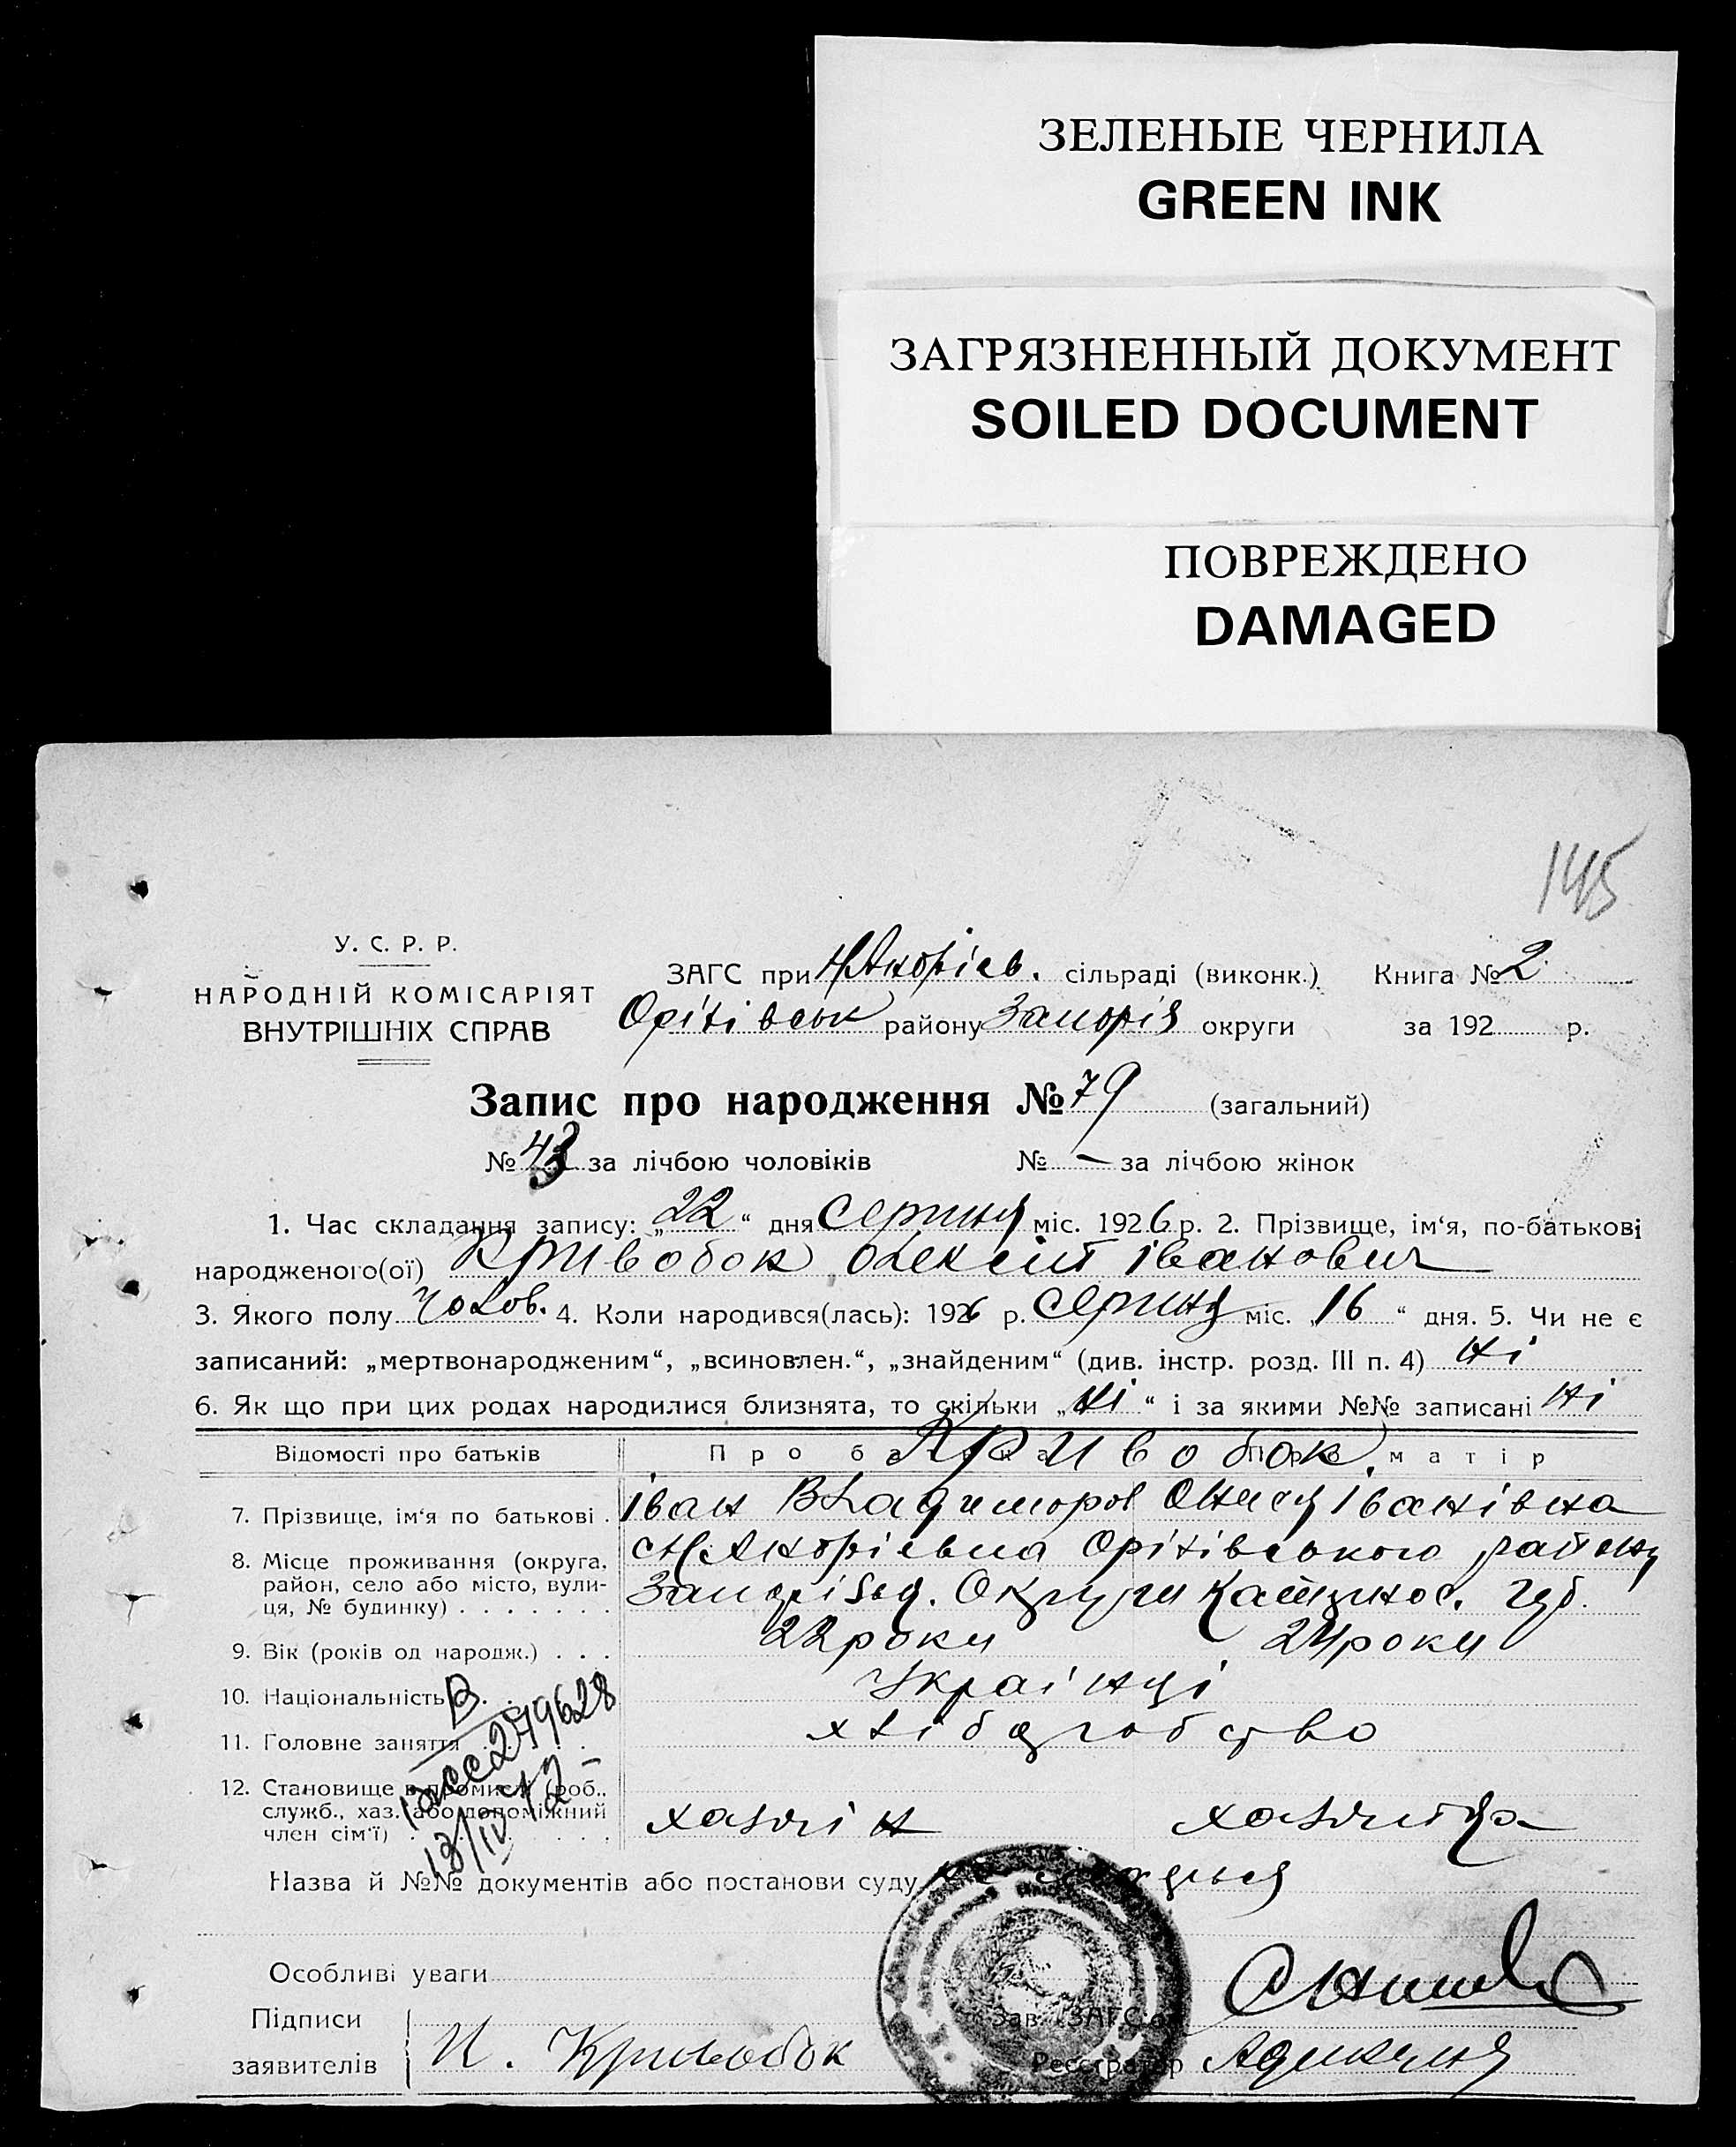 ЗЕЛЕНЫЕ ЧЕРНИЛА
GREEN INK
ЗАГРЯЗНЕННЫЙ ДОКУМЕНТ
SOILED DOCUMENT
ПОВРЕЖДЕНО
DAMAGED
145
У. С. Р. Р.
НАРОДНІЙ КОМІСАРІЯТ
ВНУТРІШНІХ СПРАВ
ЗАГС при сільраді (виконк.) Книга № 2
Оріхівськ району Запоріз округи за 192 р.
Запис про народження № 79 (загальний)
№ 43 за лічбою чоловіків № — за лічбою жінок
1. Час складання запису: „22“ дня серпня міс. 1926 р. 2. Прізвище, ім‘я, по-батькові
народженого(ої) Кривобок Олексій Іванович
3. Якого полу Чолов. 4. Коли народився(лась): 1926 р. серпня міс. „16“ дня. 5. Чи не є
записаний: „мертвонародженим“, „всиновлен.“, „знайденим“ (див. інстр. розд. III п. 4) Ні
6. Як що при цих родах народилися близнята, то скільки „Ні“ і за якими №№ записані Ні
Відомості про батьків Про батька Про матір
Кривобок
7. Прізвище, ім‘я по батькові . Іван Владимиров Іванівна
8. Місце проживання (округа, район, село або місто, вулиця, № будинку) . . . . . . . Оріхівського району
Округи губ.
9. Вік (років од народж.) . . . 22 роки 24 роки
10. Національність Українці
11. Головне заняття хлібороб ство
12. Становище в промислі (роб., служб., хаз. або допоміжний член сім‘ї) хазяїн хазяйка
В
279628
13/IV-72-
Назва й №№ документів або постанови суду
Особливі уваги
Підписи
заявителів И. Кривобок
Зав. ЗАГС‘ом
Реєстратор